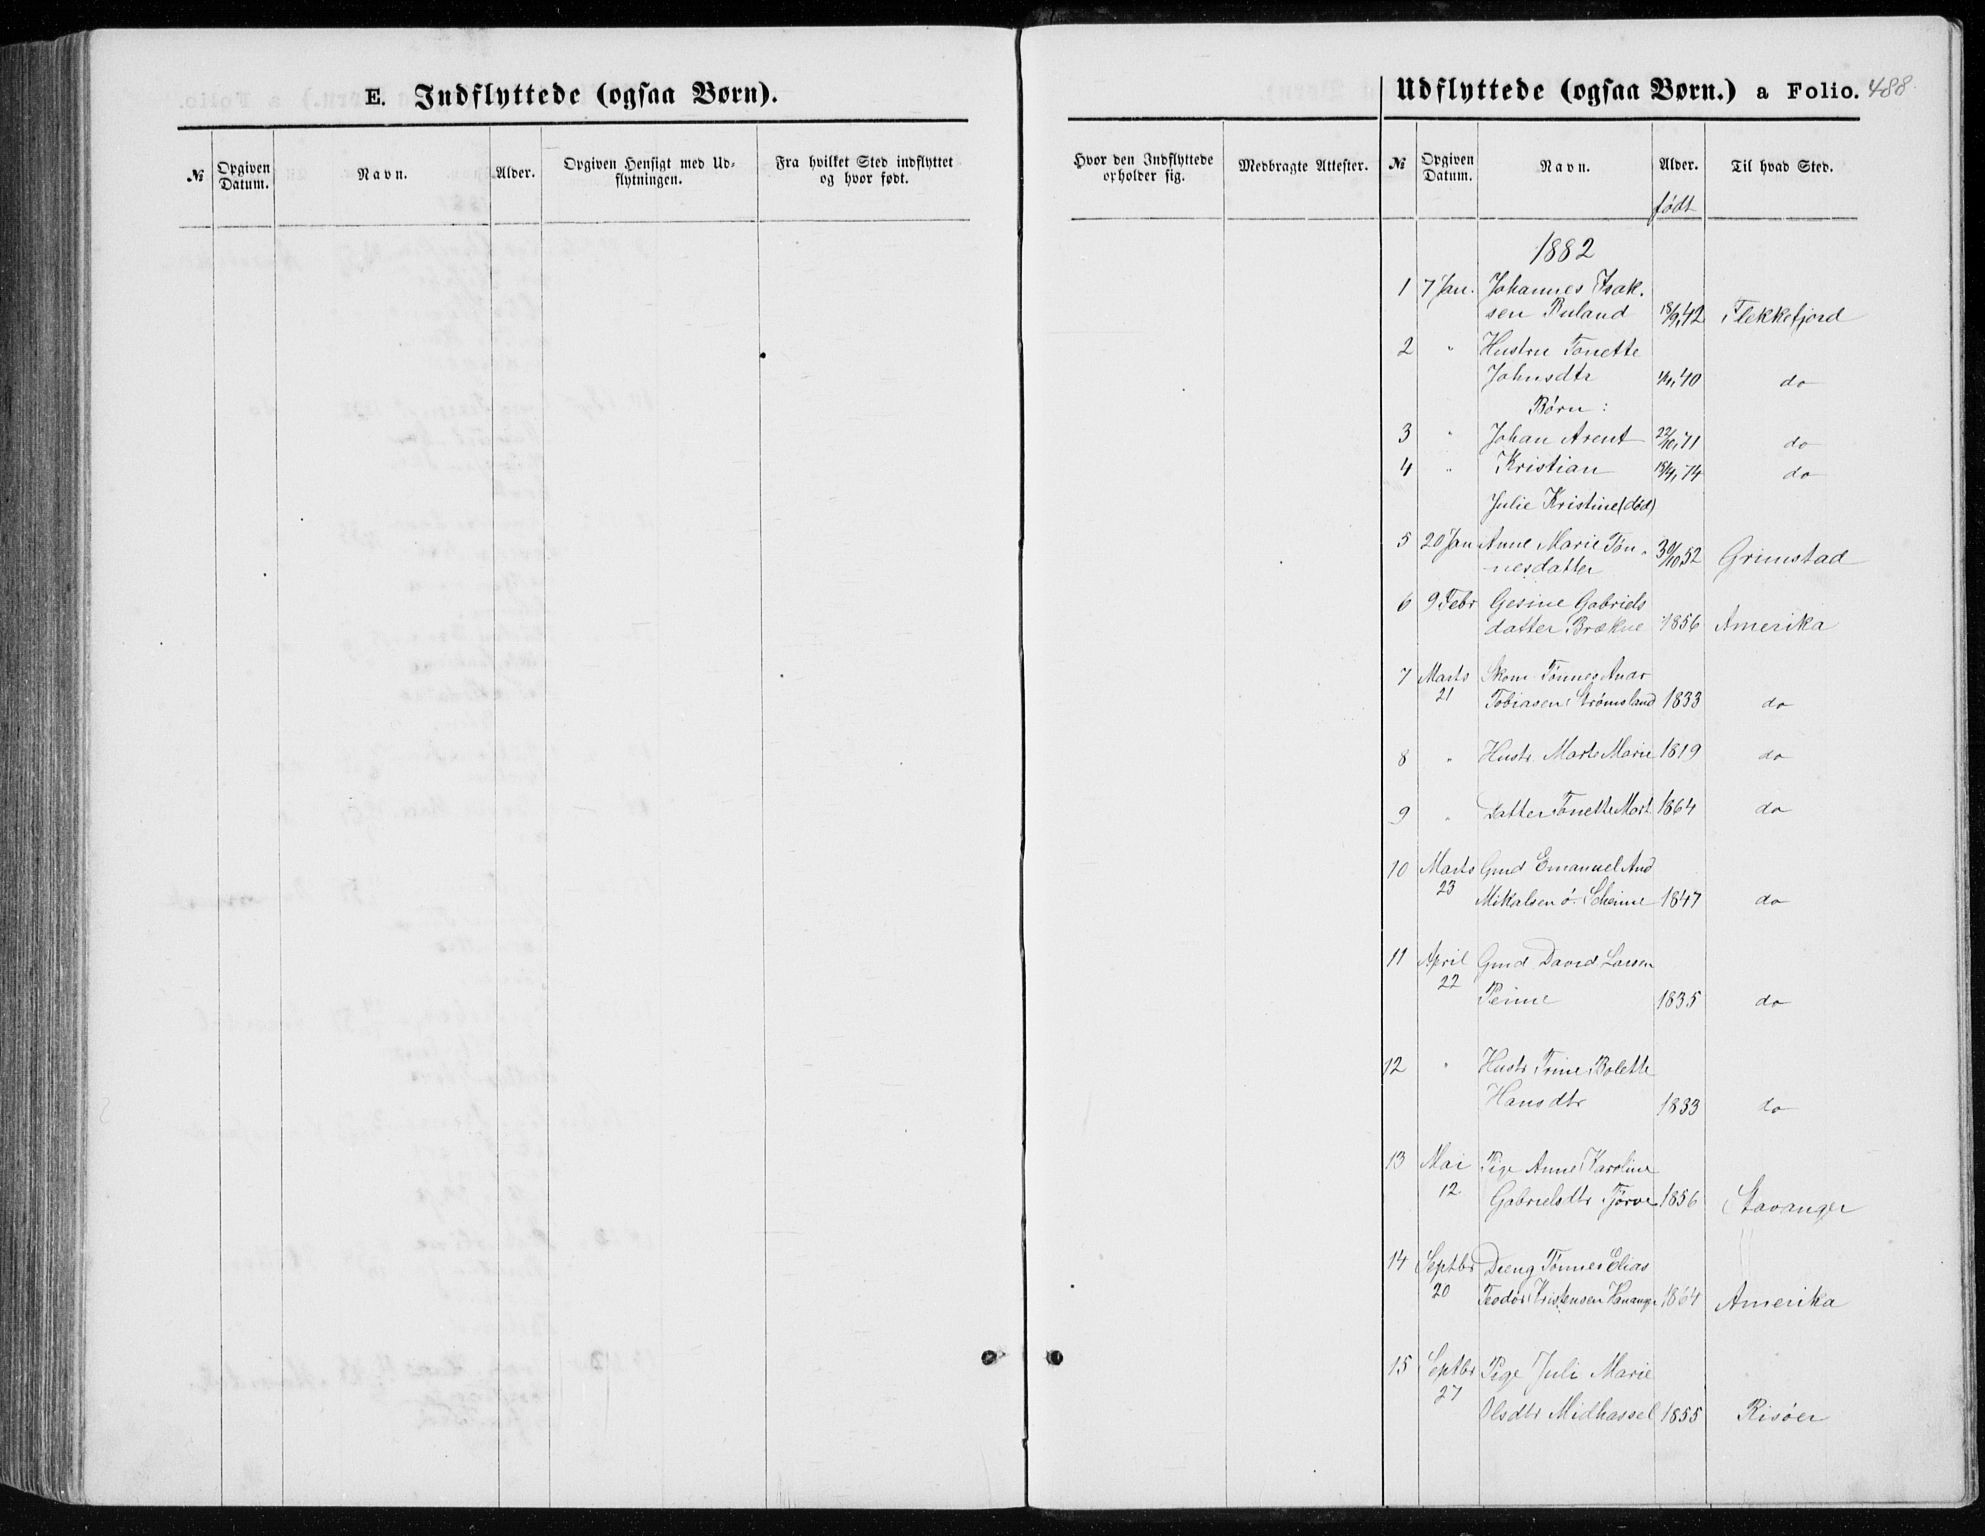 E. Indflyttede (ogsaa Børn).
№
Opgiven Datum.
Navn.
Alder.
Opgiven Hensigt med Udflytningen.
Fra hvilket Sted indflyttet og hvor født.
Udflyttede (ogsaa Børn.) a Folio. 488
Hvor den Indflyttede opholder sig.
Medbragte Attester.
№
Opgiven Datum.
Navn.
Alder.
Til hvad Sted.
født
1882
1 7 Jan. Johannes Isak.
sen Ruland 18/9,42 Flekkefjord
2 " Hustru Tonette
Johnsdtr 40 do
Børn:
3 " Johan Arent 22/10,71 do
4 " Kristian 74 do
Julie Kristine (død)
5 20 Jan Anne Marie Tøn-
nesdatter 30/10,52 Grimstad
6 9 Febr Gesine Gabriels
datter Brækne 1856 Amerika
7 Marts Skom. Tønnes Andr
21 Tobiasen Strømsland 1833 do
8 " Hustr. Marte Marie 1819 do
9 " Datter Tonette Mart. 1864 do
10 Marts Gmd Emanuel And
23 Mikalsen ø. Skeime 1847 do
11 April Gmd David Larsen
22 Penne 1835 do
12 " Hustr Trine Bolette
Hansdtr 1833 do
13 Mai Pige Anne Karoline
12 Gabrielsdtr Tjørve 1856 Stavanger
14 Septbr Dreng Tønnes Elias
20 Teodor Kristensen Hananger 1864 Amerika
15 Septbr Pige Juli Marie
27 Olsdtr Midhassel 1855 Risøer